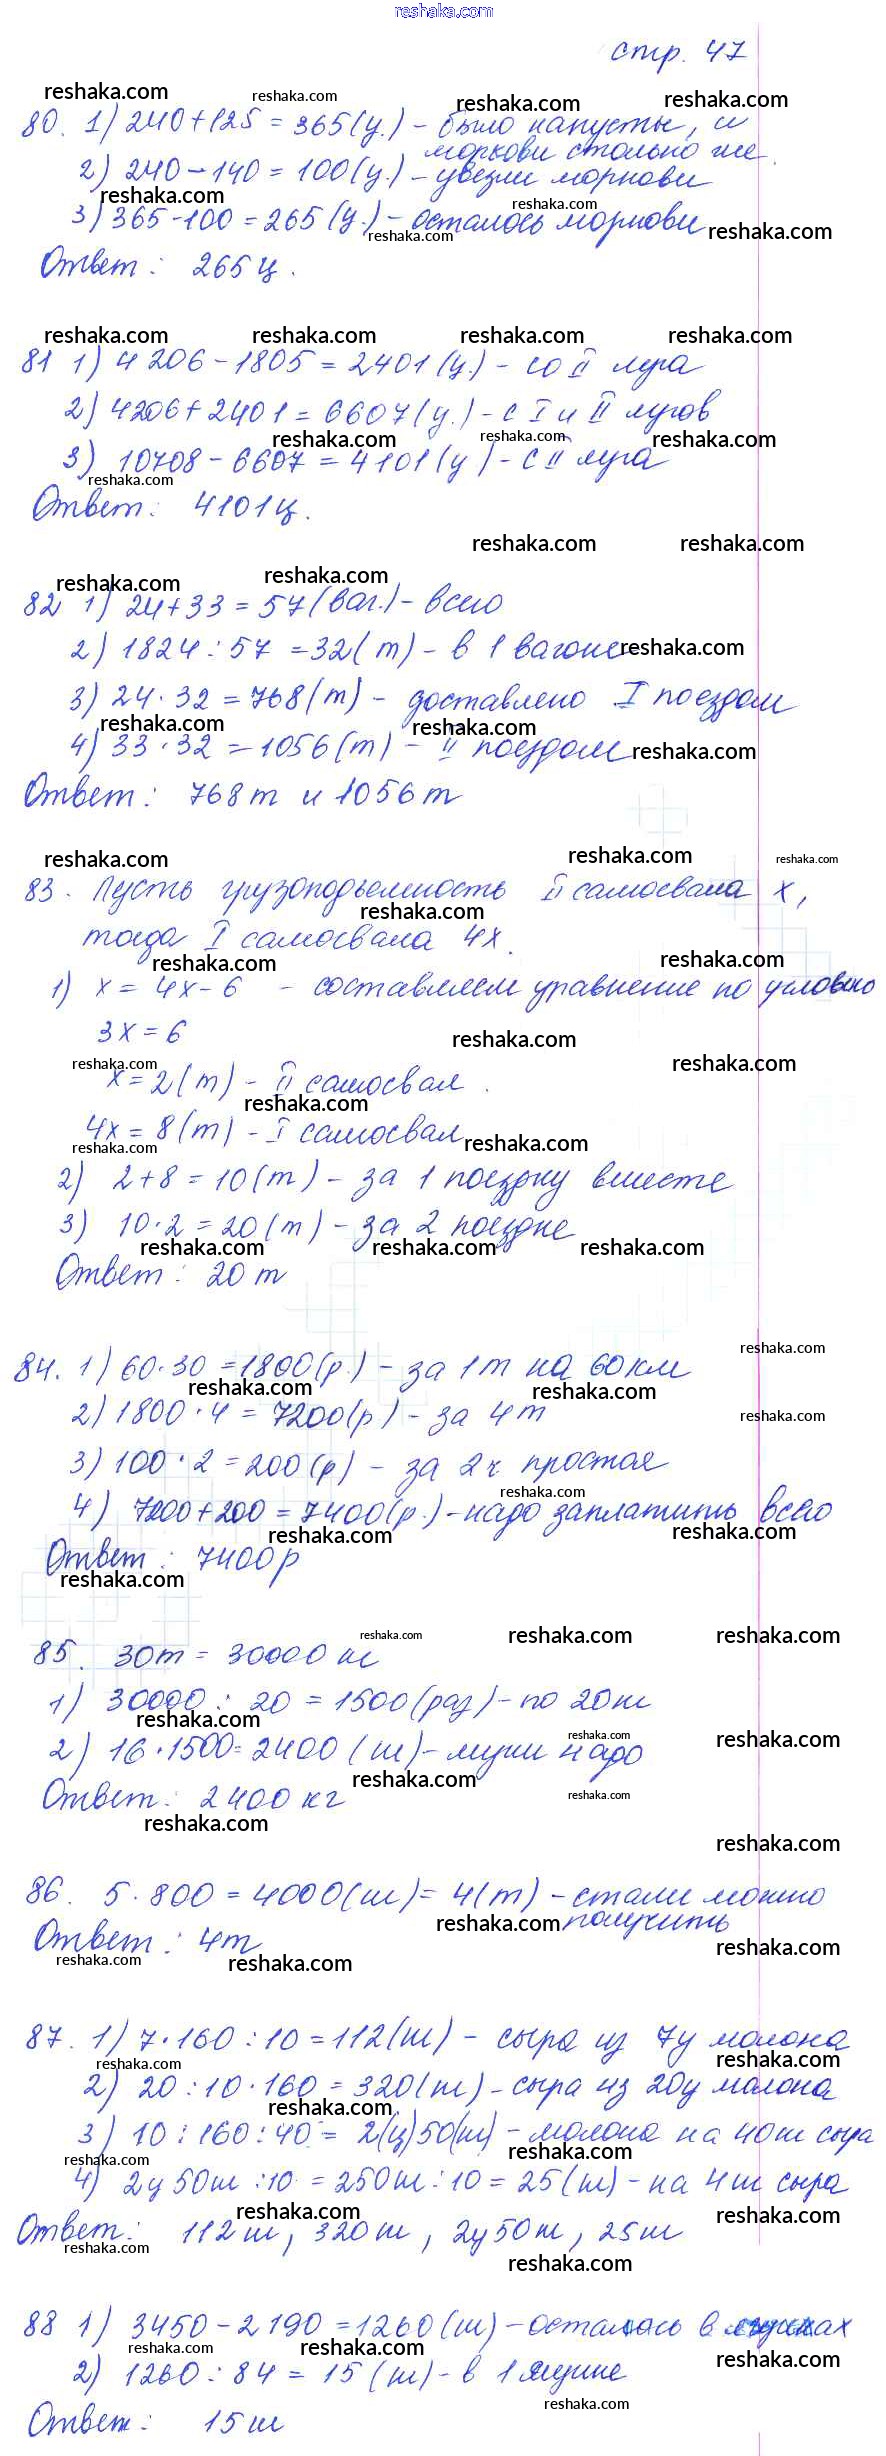 reshaka.com
стр. 47
80. 1) 240+125 = 365 (ц.) - было капусты, и
моркови столько же.
2) 240-140 = 100 (ц.) - увезли моркови
3) 365-100 = 265 (ц.) - осталось моркови
Ответ: 265 ц.
81 1) 4206-1805 = 2401 (ц.) - со II луга
2) 4206+2401 = 6607 (ц.) - с I и II лугов
3) 10708-6607 = 4101 (ц) - с II луга
Ответ: 4101 ц.
82 1) 24+33 = 57 (ваг.) - всего
2) 1824 : 57 = 32 (т) - в 1 вагоне
3) 24 · 32 = 768 (т) - доставлено I поездом
4) 33 · 32 = 1056 (т) - II поездом
Ответ: 768 т и 1056 т
83. Пусть грузоподъемность II самосвала x,
тогда I самосвала 4x.
1) x = 4x - 6 - составляем уравнение по условию
3x = 6
x = 2 (т) - II самосвал.
4x = 8 (т) - I самосвал
2) 2+8 = 10 (т) - за 1 поездку вместе
3) 10 · 2 = 20 (т) - за 2 поездке
Ответ: 20 т
84. 1) 60 · 30 = 1800 (р.) - за 1 т на 60 км
2) 1800 · 4 = 7200 (р) - за 4 т
3) 100 · 2 = 200 (р) - за 2 ч простоя
4) 7200+200 = 7400 (р.) - надо заплатить всего
Ответ: 7400 р
85. 30 т = 30000 кг
1) 30000 : 20 = 1500 (раз) - по 20 кг
2) 16 · 1500 = 2400 (кг) - муки надо
Ответ: 2400 кг
86. 5 · 800 = 4000 (кг) = 4 (т) - стали можно
получить
Ответ: 4 т
87. 1) 7 · 160 : 10 = 112 (кг) - сыра из 7 ц молока
2) 20 : 10 · 160 = 320 (кг) - сыра из 20 ц молока
3) 10 : 160 : 40 = 2 (ц) 50 (кг) - молока на 40 кг сыра
4) 2 ц 50 кг : 10 = 250 кг : 10 = 25 (кг) - на 4 кг сыра
Ответ: 112 кг, 320 кг, 2 ц 50 кг, 25 кг
88 1) 3450-2190 = 1260 (кг) - осталось в ящиках
2) 1260 : 84 = 15 (кг) - в 1 ящике
Ответ: 15 кг